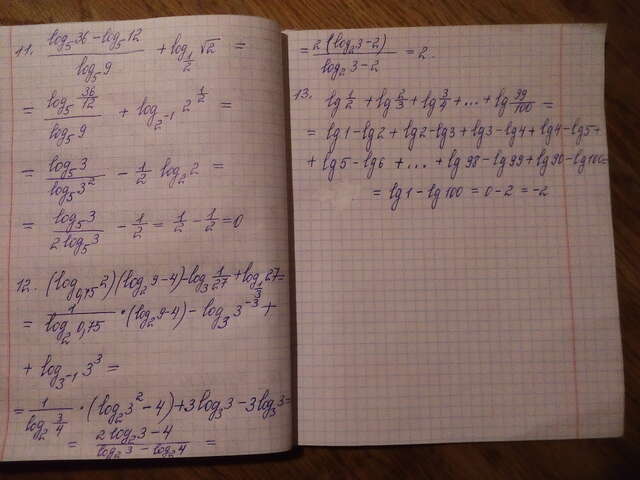 11. (log₅36 − log₅12)/(log₅9) + log_{1/2} √2 =
= (log₅ 36/12)/(log₅9) + log_{2⁻¹} 2^{1/2} =
= (log₅3)/(log₅3²) − 1/2 log₂2 =
= (log₅3)/(2log₅3) − 1/2 = 1/2 − 1/2 = 0
12. (log_{0,75} 2)(log₂9 − 4) − log₃ 1/27 + log_{1/3} 27 =
= 1/(log₂0,75) • (log₂9 − 4) − log₃3⁻³ +
+ log_{3⁻¹} 3³ =
= 1/(log₂ 3/4) • (log₂3² − 4) + 3log₃3 − 3log₃3 =
= (2log₂3 − 4)/(log₂3 − log₂4) =
= 2(log₂3 − 2)/(log₂3 − 2) = 2.
13. lg 1/2 + lg 2/3 + lg 3/4 + ... + lg 99/100 =
= lg1 − lg2 + lg2 − lg3 + lg3 − lg4 + lg4 − lg5 +
+ lg5 − lg6 + ... + lg98 − lg99 + lg90 − lg100 =
= lg1 − lg100 = 0 − 2 = −2